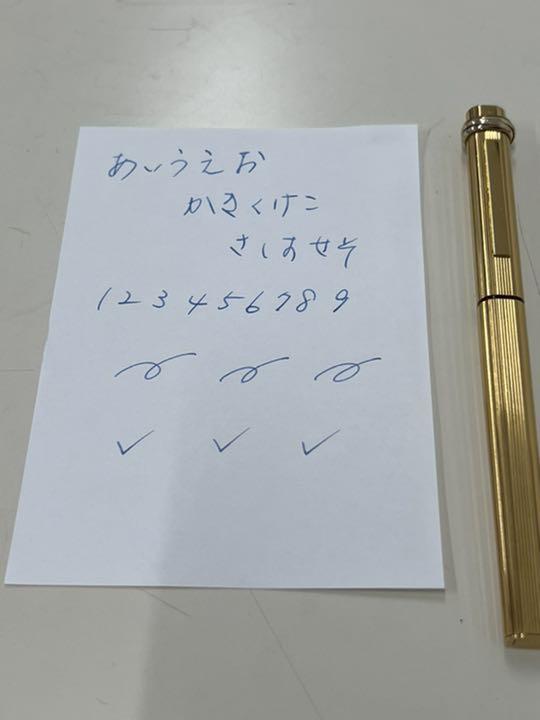 あいうえお
かきくけこ
さしすせそ
123456789
✓ ✓ ✓